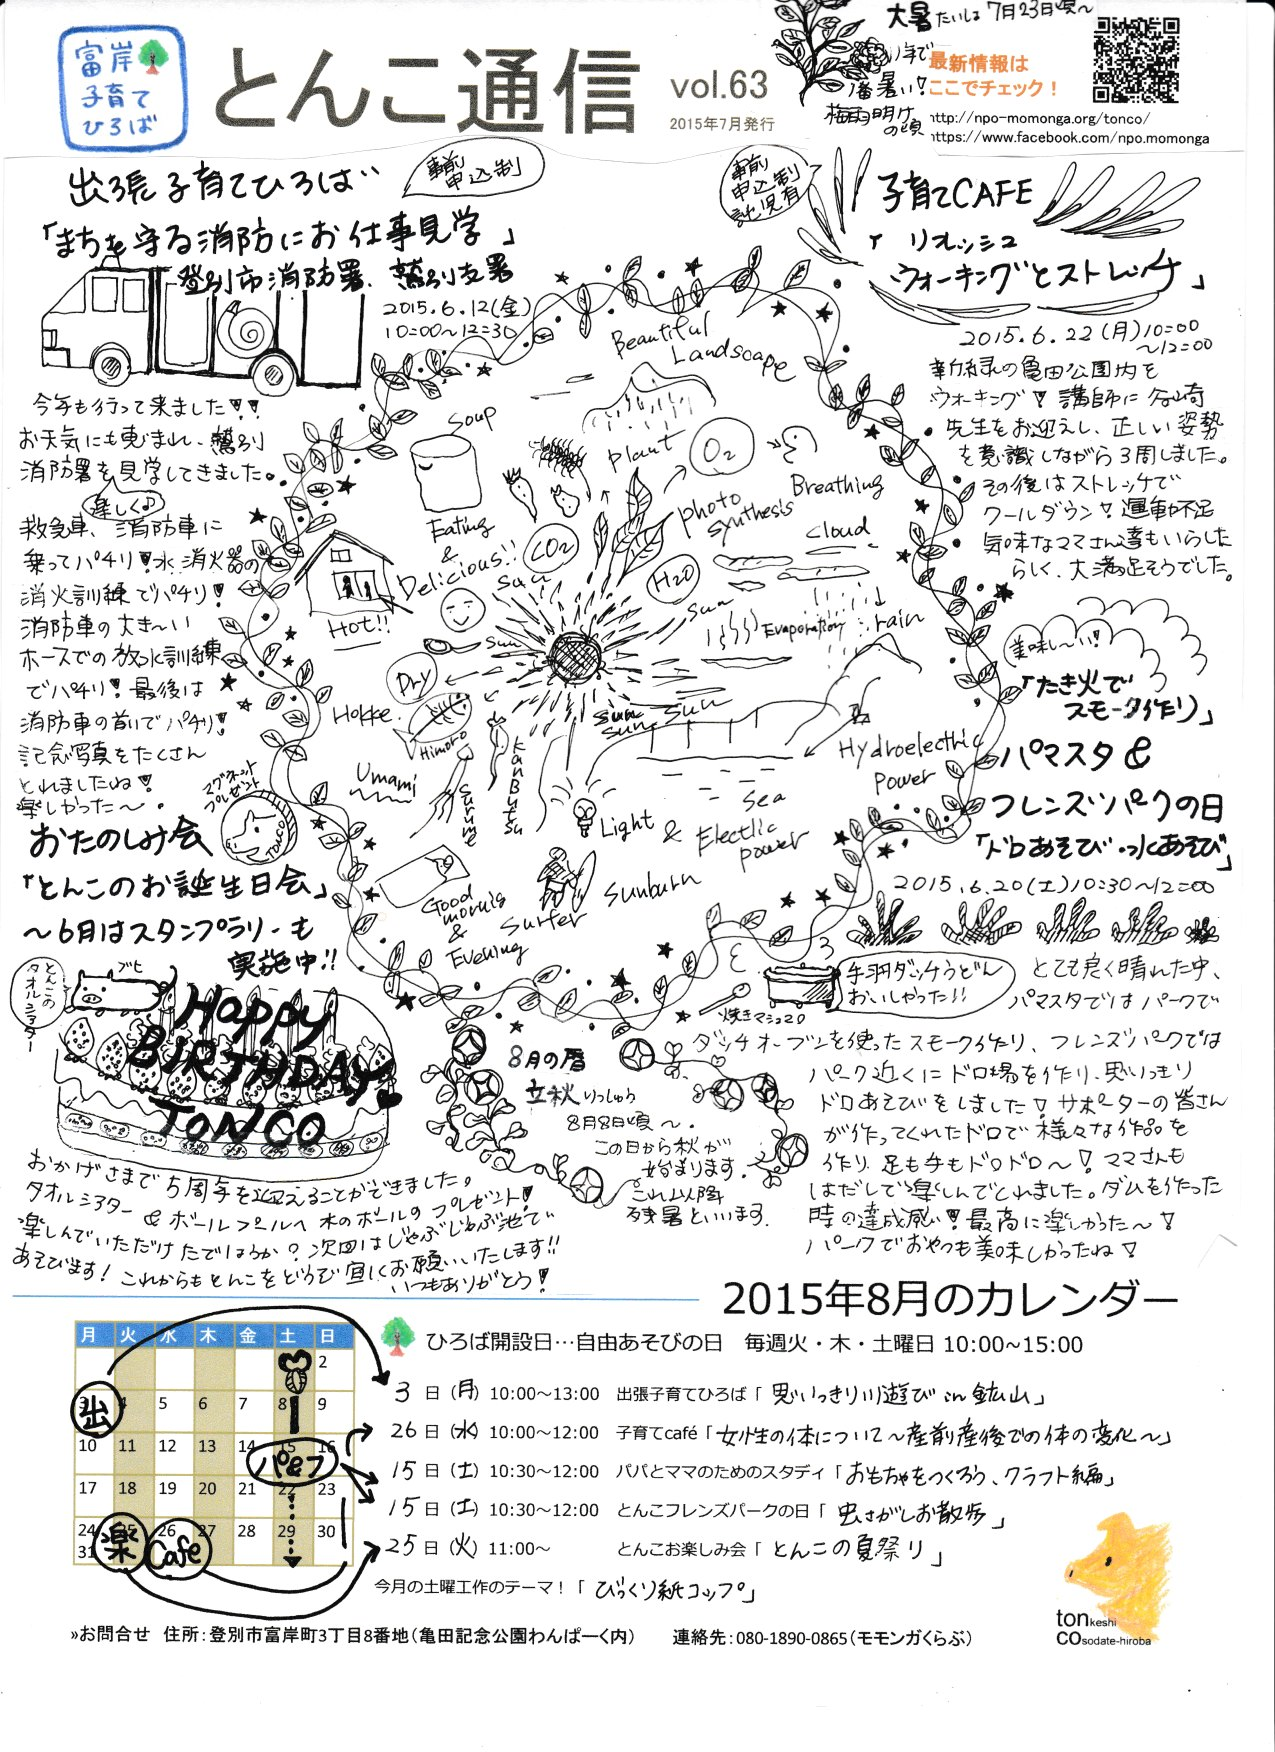 富岸
子育て
ひろば
とんこ通信 vol.63
2015年7月発行
大暑 たいしょ 7月23日頃〜
1年で
1番暑い!
梅雨明け
の頃
最新情報は
ここでチェック!
http://npo-momonga.org/tonco/
https://www.facebook.com/npo.momonga
出張子育てひろば
事前
申込制
「まちを守る消防にお仕事見学」
登別市消防署、鷲別支署
2015.6.12(金)
10:00〜12:30
今年も行って来ました!!
お天気にも恵まれ、鷲別
消防署を見学してきました。
楽しく♪
救急車、消防車に
乗ってパチリ!水消火器の
消火訓練でパチリ!
消防車の大き〜い
ホースでの放水訓練
でパチリ!最後は
消防車の前でパチリ!
記念写真をたくさん
とれましたね!
楽しかった〜。
事前
申込制
託児有
子育てCAFE
「リフレッシュ
ウォーキングとストレッチ」
2015.6.22(月)10:00
〜12:00
新緑の亀田公園内を
ウォーキング!講師に谷崎
先生をお迎えし、正しい姿勢
を意識しながら3周しました。
その後はストレッチで
クールダウン!運動不足
気味なママさん達もいらした
らしく、大満足そうでした。
Beautiful
Landscape
Soup
Plant
O2
Breathing
Photo
synthesis
Eating
&
Delicious!!
CO2
H2O
cloud
Sun
Sun
Evaporation
rain
Hot!!
Sun
Dry
Hokke
Himono
Umami
Surume
Kanbutsu
Sun
Sun
Sun
Hydroelectric
Power
Sea
Light & Electlic
power
Good
mornig
&
Evening
Surfer
Sunburn
美味し〜い!
「たき火で
スモーク作り」
パマスタ&
フレンズパークの日
「ドロあそび・水あそび」
2015.6.20(土)10:30〜12:00
手羽ダッチうどん
おいしかった!!
焼きマシュマロ
とても良く晴れた中、
パマスタではパークで
ダッチオーブンを使ったスモーク作り、フレンズパークでは
パーク近くにドロ場を作り、思いっきり
ドロあそびをしました!サポーターの皆さん
が作ってくれたドロで様々な作品を
作り、足も手もドロドロ〜!ママさんも
はだしで楽しんでくれました。ダムを作った
時の達成感!最高に楽しかった〜!
パークでおやつも美味しかったね!
マグネット
プレゼント
TONCO
おたのしみ会
「とんこのお誕生日会」
〜6月はスタンプラリーも
実施中!!
とんこの
タオルシアター
ブヒ
Happy
BIRTHDAY
TONCO
おかげさまで5周年を迎えることができました。
タオルシアター&ボールプールへ木のボールのプレゼント!
楽しんでいただけたでしょうか?次回はじゃぶじゃぶ池で
あそびます!これからもとんこをどうぞ宜しくお願いいたします!!
いつもありがとう!
8月の暦
立秋 りっしゅう
8月8日頃〜。
この日から秋が
始まります。
これ以降
残暑といいます。
2015年8月のカレンダー
月 火 水 木 金 土 日
2
3 4 5 6 7 8 9
10 11 12 13 14 15 16
17 18 19 20 21 22 23
24 25 26 27 28 29 30
31
出
パ&フ
楽
Cafe
ひろば開設日…自由あそびの日 毎週火・木・土曜日 10:00~15:00
3日(月) 10:00~13:00 出張子育てひろば「思いっきり川遊び in 鉱山」
26日(水) 10:00~12:00 子育てcafé「女性の体について〜産前産後での体の変化〜」
15日(土) 10:30~12:00 パパとママのためのスタディ「おもちゃをつくろう、クラフト編」
15日(土) 10:30~12:00 とんこフレンズパークの日「虫さがしお散歩」
25日(火) 11:00~ とんこお楽しみ会「とんこの夏祭り」
今月の土曜工作のテーマ!「びっくり紙コップ」
»お問合せ 住所:登別市富岸町3丁目8番地(亀田記念公園わんぱーく内) 連絡先:080-1890-0865(モモンガくらぶ)
tonkeshi
COsodate-hiroba